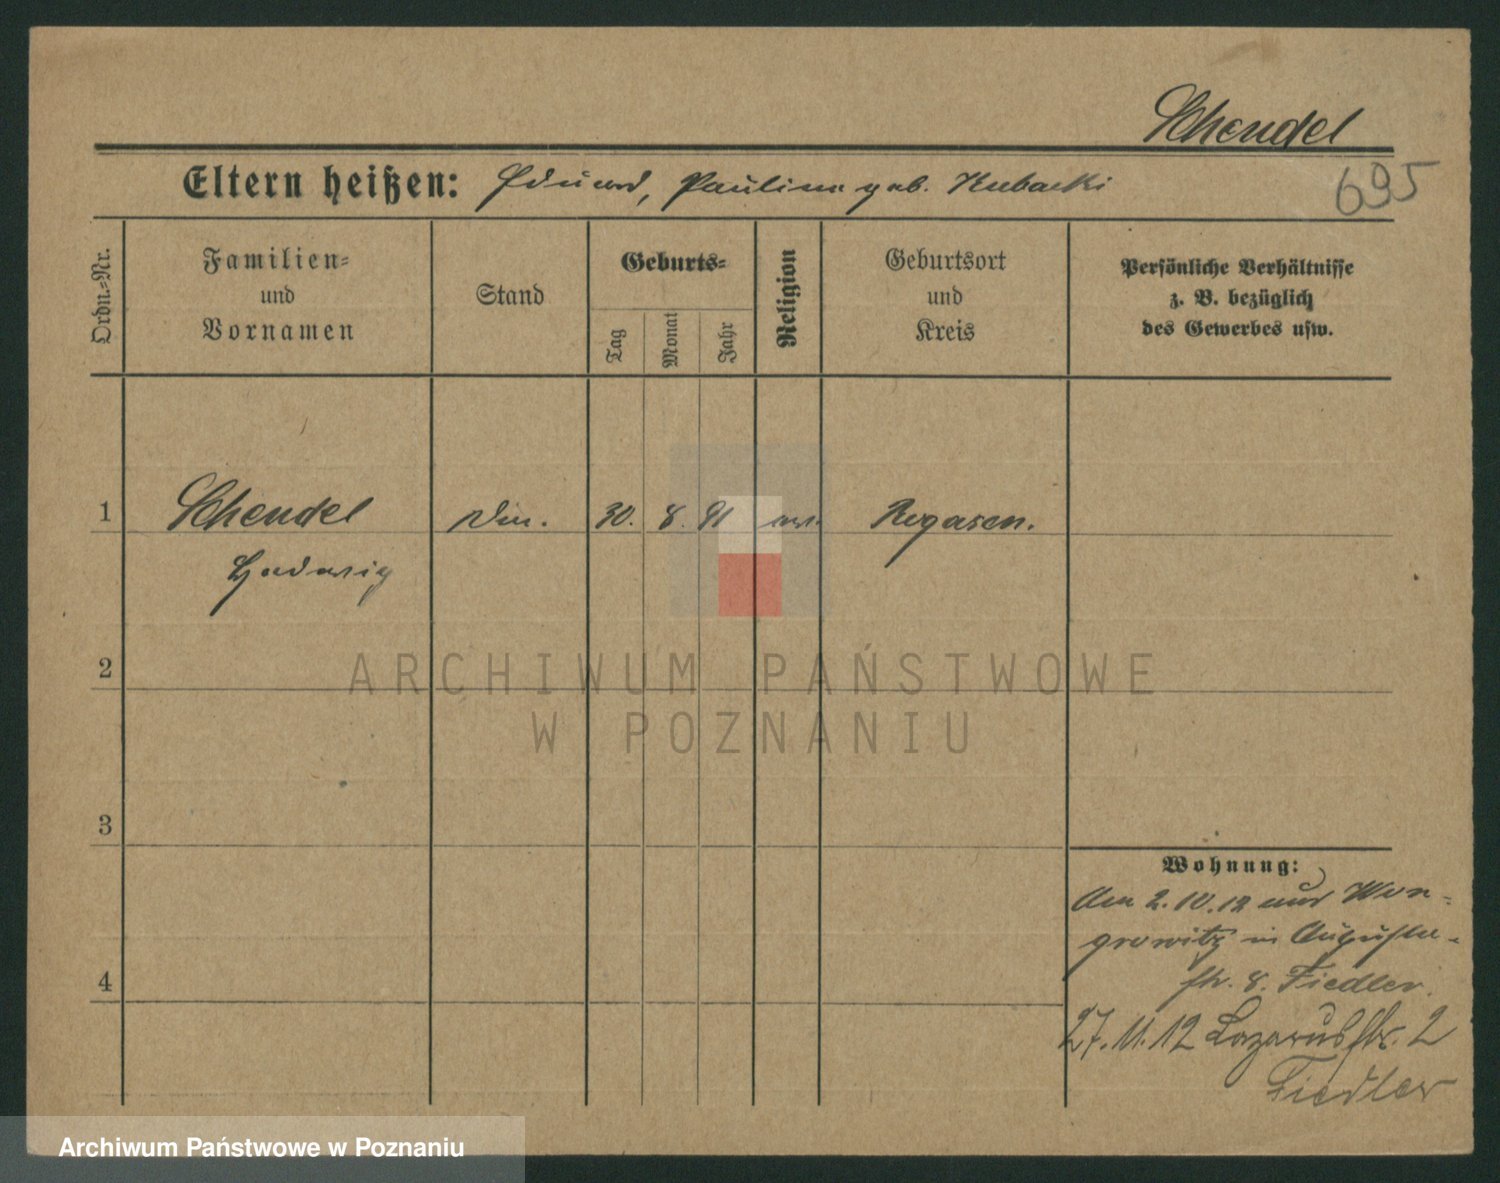 Schendel
Eltern heißen: Eduard, Pauline geb. Kubacki
695
Ordn.-Nr.
Familien-
und
Vornamen
Stand
Geburts-
Tag
Monat
Jahr
Religion
Geburtsort
und
Kreis
Persönliche Verhältnisse
z. B. bezüglich
des Gewerbes usw.
1 Schendel 30. 8. 91 Rogasen.
Hedwig
2
ARCHIWUM PAŃSTWOWE
W POZNANIU
3
Wohnung:
Am 2.10.12 aus Won-
growitz in Augusta-
4
str. 8. Fiedler.
27.11.12 Lazarusstr. 2
Fiedler
Archiwum Państwowe w Poznaniu